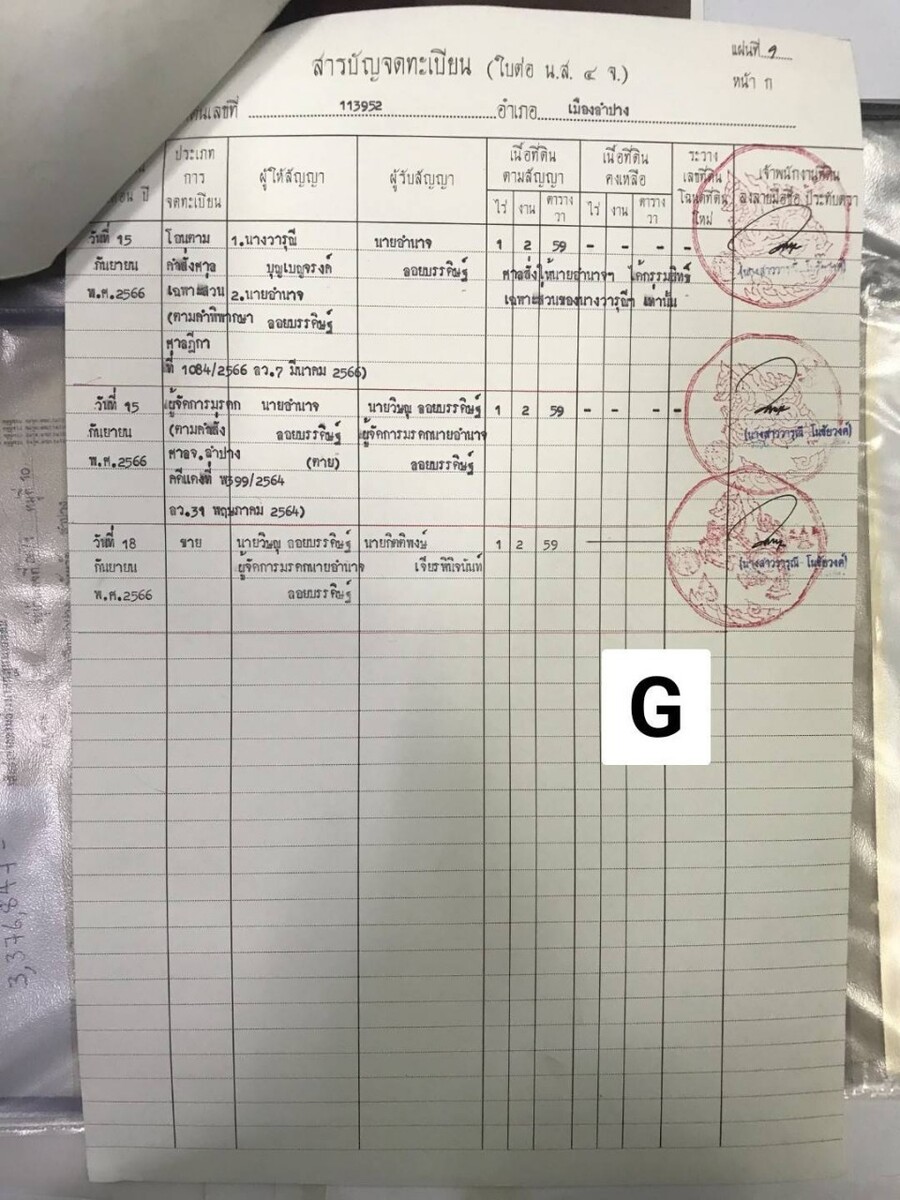 สารบัญจดทะเบียน (ใบต่อ น.ส. ๔ จ.)
แผ่นที่ ๑
หน้า ก
เลขที่ 113952 อำเภอ เมืองลำปาง
ปี
ประเภท
การ
จดทะเบียน
ผู้ให้สัญญา
ผู้รับสัญญา
เนื้อที่ดิน
ตามสัญญา
ไร่ งาน ตาราง
วา
เนื้อที่ดิน
คงเหลือ
ไร่ งาน ตาราง
วา
ระวาง
เลขที่ดิน
โฉนดที่ดิน
ใหม่
เจ้าพนักงานที่ดิน
ลงลายมือชื่อ ประทับตรา
วันที่ 15 โอนตาม 1.นางวารุณี นายอำนาจ 1 2 59 - - - -
กันยายน คำสั่งศาล บุญเบญจรงค์ ลอยบรรดิษฐ์ ศาลสั่งให้นายอำนาจฯ ได้กรรมสิทธิ์
พ.ศ.2566 เฉพาะส่วน 2.นายอำนาจ เฉพาะส่วนของนางวารุณีฯ เท่านั้น
(ตามคำพิพากษา ลอยบรรดิษฐ์
ศาลฎีกา
ที่ 1084/2566 ลว.7 มีนาคม 2566)
วันที่ 15 ผู้จัดการมรดก นายอำนาจ นายวิษณุ ลอยบรรดิษฐ์ 1 2 59 - - - -
กันยายน (ตามคำสั่ง ลอยบรรดิษฐ์ ผู้จัดการมรดกนายอำนาจ
พ.ศ.2566 ศาลจ.ลำปาง (ตาย) ลอยบรรดิษฐ์
คดีแดงที่ พ399/2564
ลว.31 พฤษภาคม 2564)
(นางสาววารุณี โนชัยวงค์)
วันที่ 18 ขาย นายวิษณุ ลอยบรรดิษฐ์ นายกิตติพงษ์ 1 2 59
กันยายน ผู้จัดการมรดกนายอำนาจ เจียรพินิจนันท์
พ.ศ.2566 ลอยบรรดิษฐ์
(นางสาววารุณี โนชัยวงค์)
G
3,376,847 -